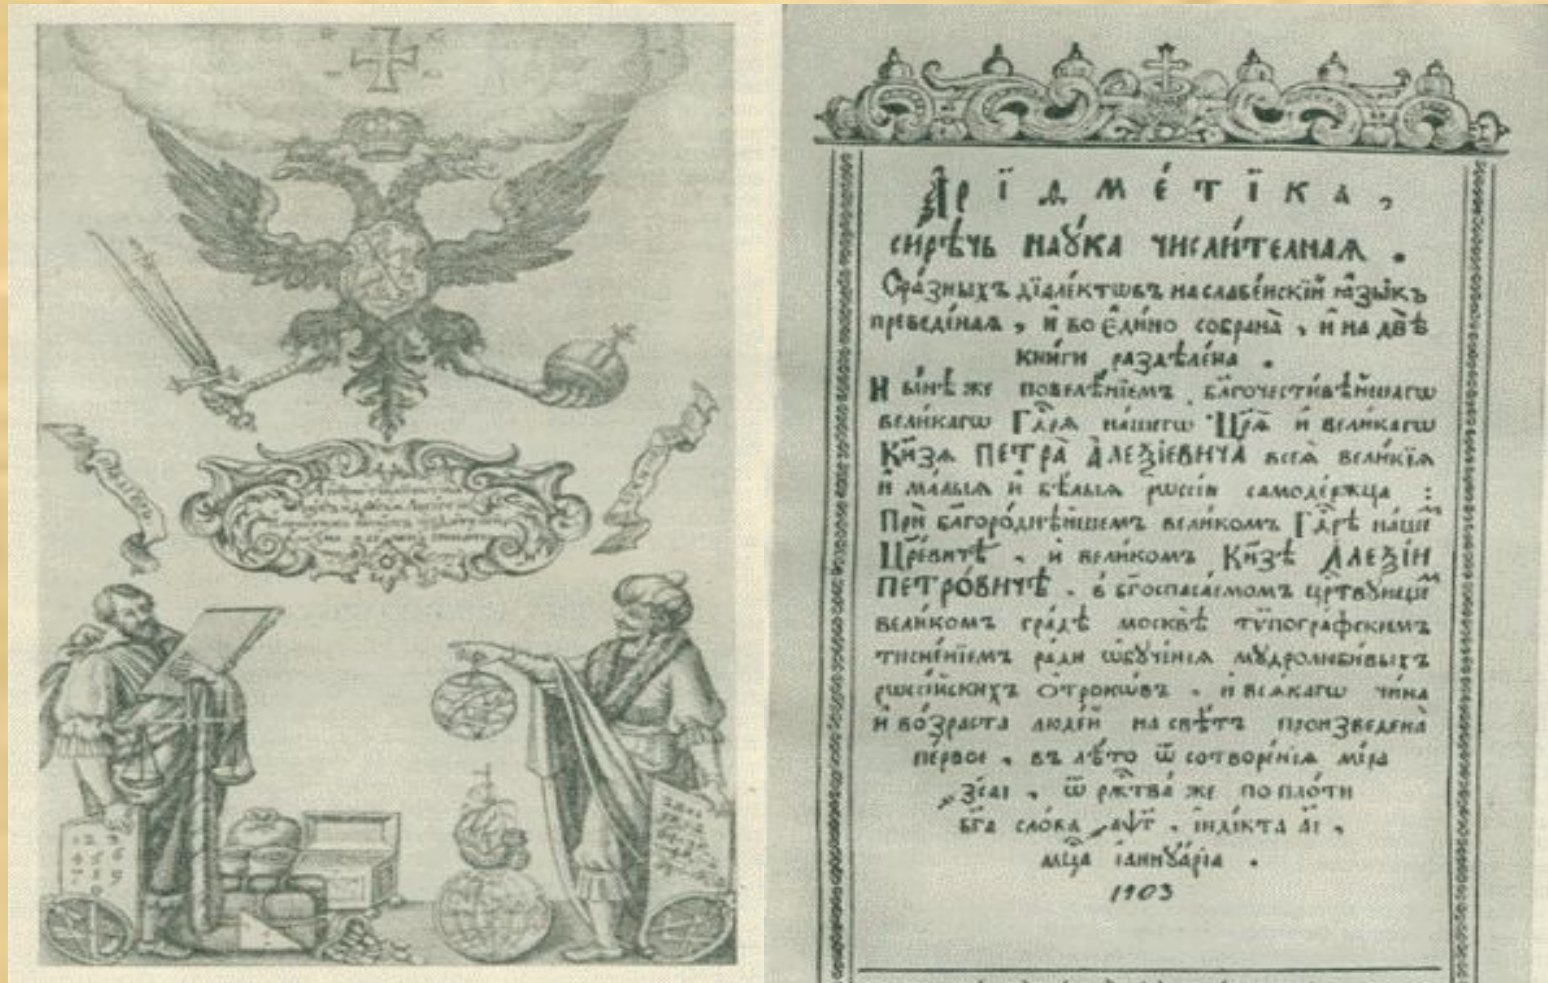 Арїѳме́тїка,
сирѣ́чь наꙋ́ка числи́телнаѧ .
С̾ра́зныхъ дїале́ктѡвъ на славе́нскїй ꙗ҆зы́къ
преведе́наѧ , и҆ во є҆ди́но собрана̀ , и҆ на двѣ̀
кни́ги раздѣле́на .
Н҃ы́нѣ же повелѣ́нїемъ бл҃гочести́вѣйшагѡ
вели́кагѡ Гдⷭ҇рѧ на́шегѡ Цр҃ѧ̀ и҆ вели́кагѡ
Кн҃зѧ ПЕТРА̀ А҆ЛЕѮІЕВИЧА всеѧ̀ вели́кїѧ
и҆ ма́лыѧ и҆ бѣ́лыѧ рѡссі́и самоде́ржца :
Прѝ бл҃горо́днѣйшемъ вели́комъ Гдⷭ҇рѣ на́шеⷨ
Цр҃евичѣ , и҆ вели́комъ Кн҃зѣ АЛЕѮІИ
ПЕТРО́ВИЧѢ . в̾ бг҃оспаса́емомъ црⷭ҇твꙋющеⷨ
вели́комъ гра́дѣ москвѣ̀ тѷпогра́фскимъ
тисне́нїемъ ра́ди ѡ҆бꙋче́нїѧ мꙋдролюби́выхъ
рѡссі́йскихъ о҆́трокѡвъ . и҆ всѧ́кагѡ чи́на
и҆ во́зраста люде́й на свѣ́тъ произведена̀
пе́рвое , въ лѣ́то ѿ сотворе́нїѧ мі́ра
҂зсаі , ѿ ржⷭ҇тва̀ же по пло́ти
бг҃а сло́ва ҂аѱг , і҆ндікта аі ,
мцⷭ҇а і҆аннꙋа́рїа .
1703